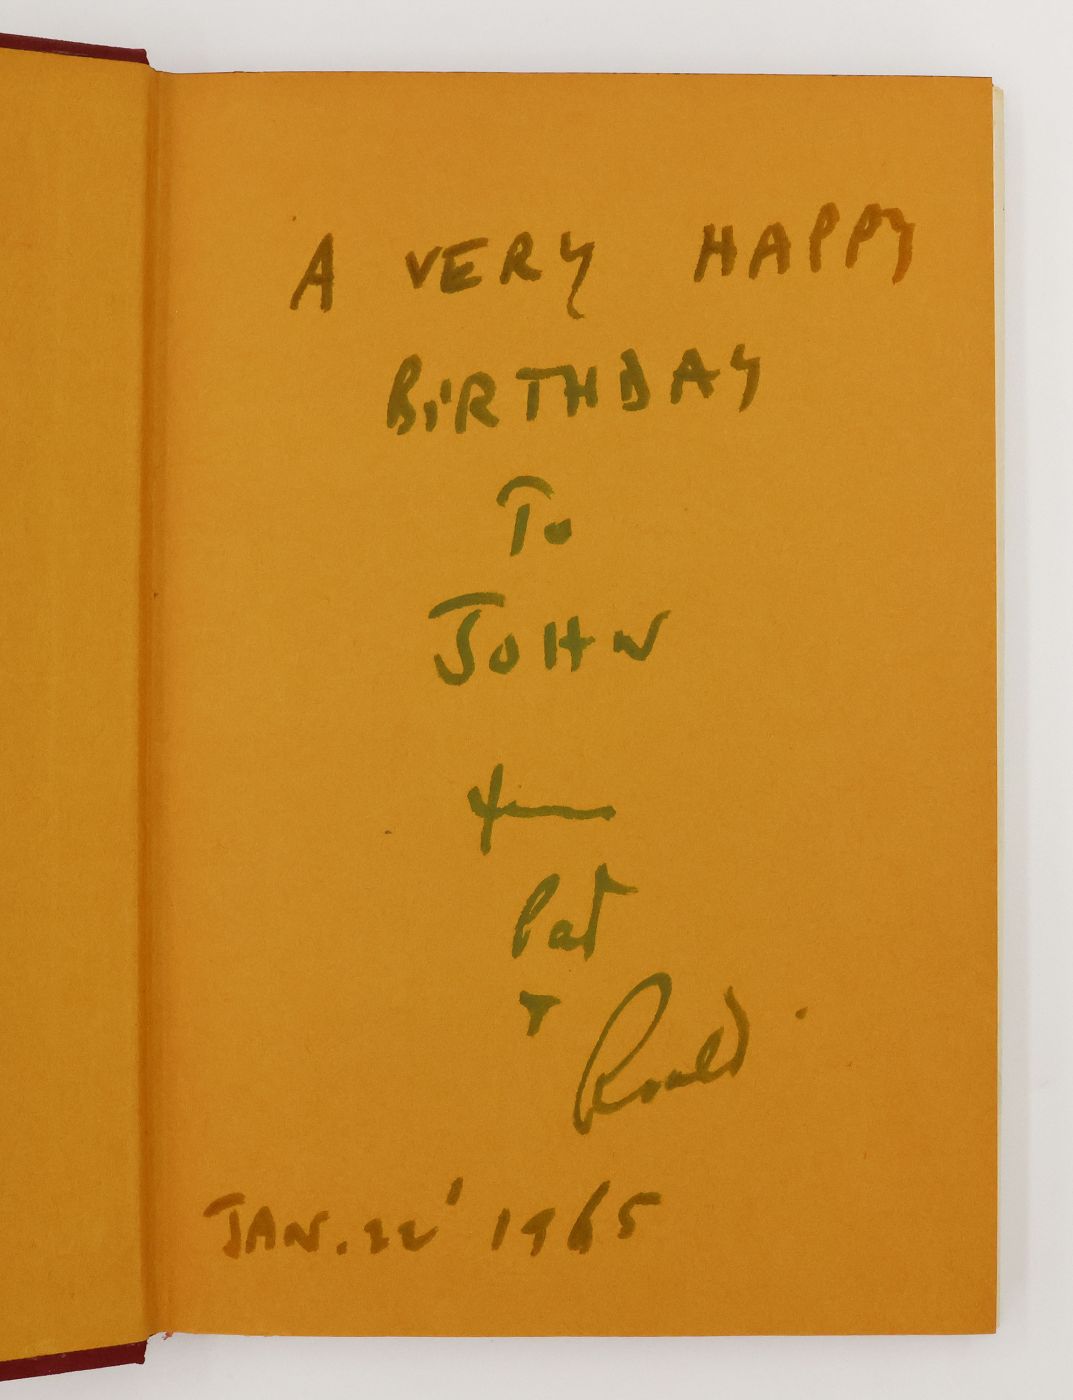 A VERY HAPPY
BIRTHDAY
To
JOHN
from
Pat
+
Roald.
JAN. 22' 1965